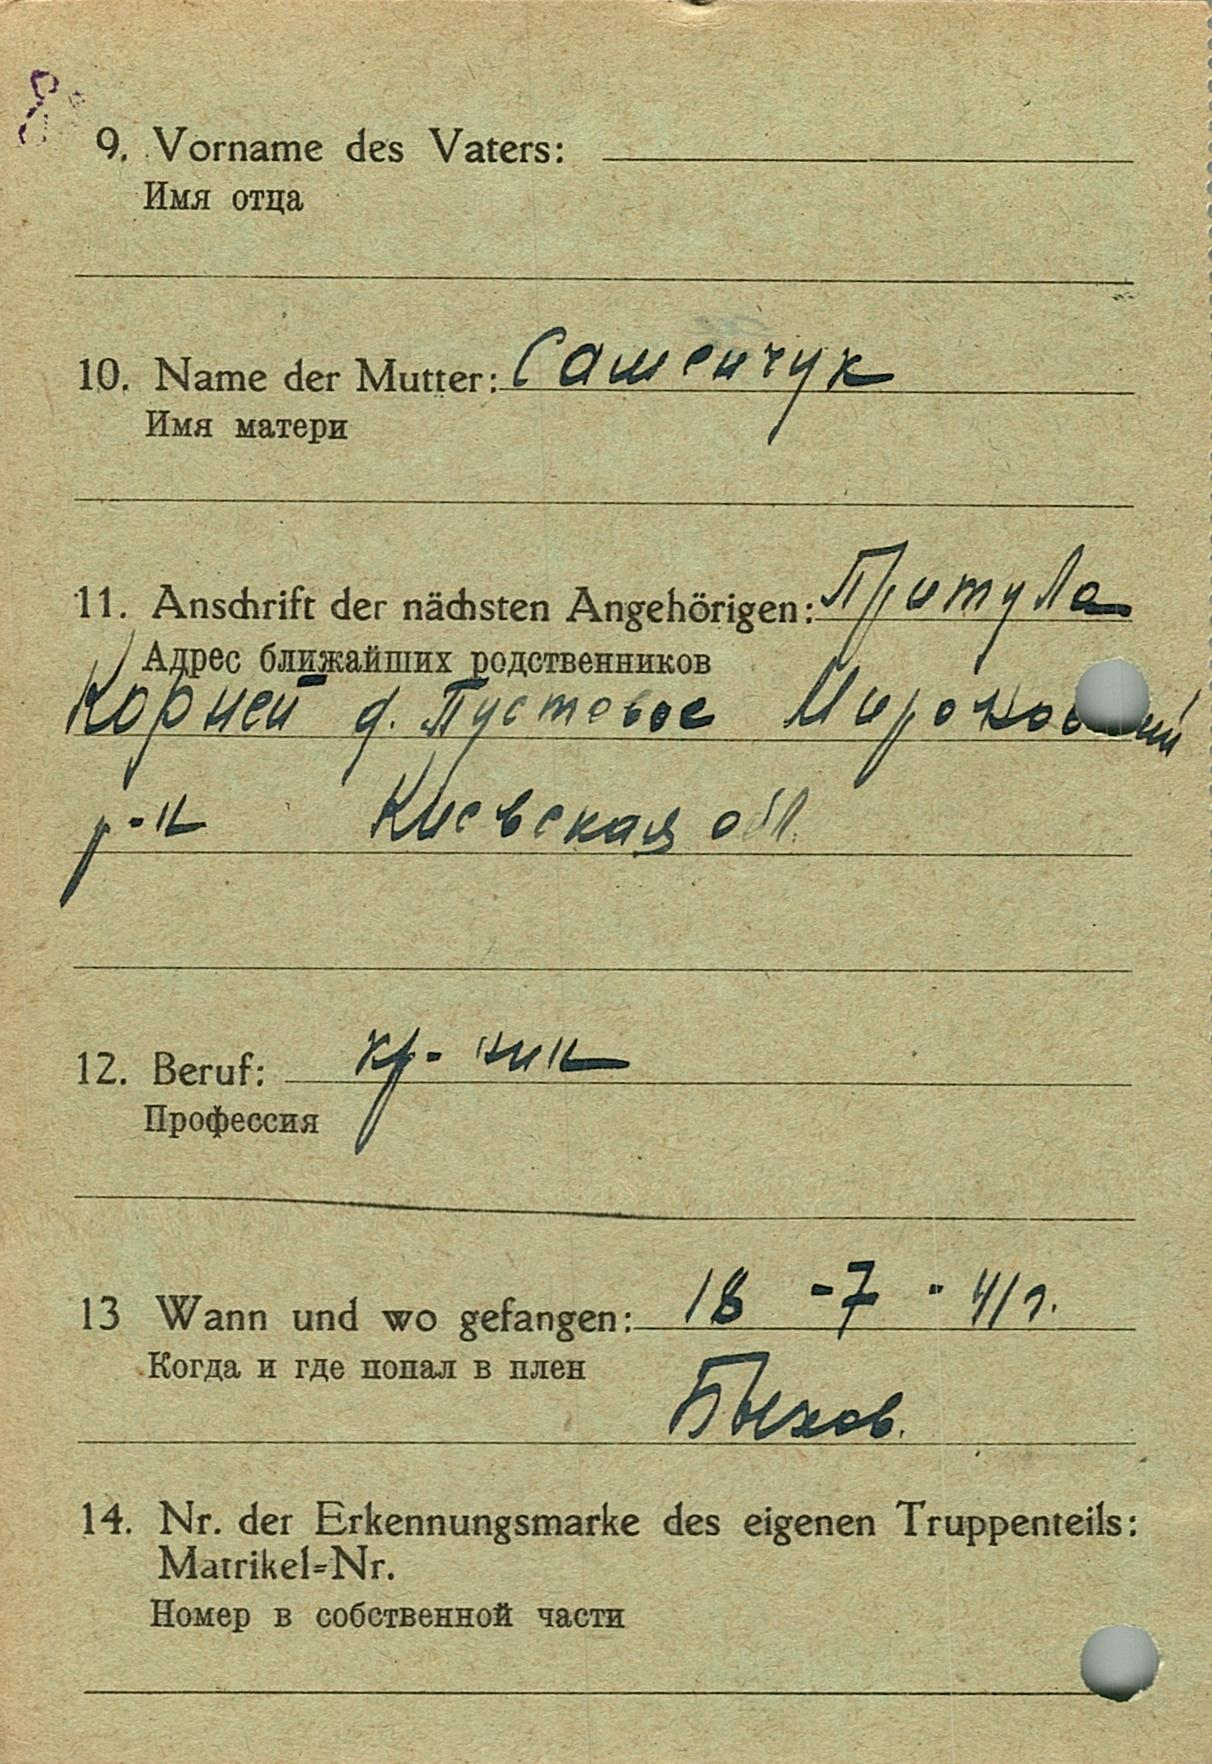 9. Vorname des Vaters:
Имя отца
10. Name der Mutter: Сашенчук
Имя матери
11. Anschrift der nächsten Angehörigen: Притула
Адрес ближайших родственников
Корней д. Пустовое
р-н Киевская обл.
12. Beruf: кр-ник
Профессия
13 Wann und wo gefangen: 18 - 7 - 41 г.
Когда и где попал в плен
Быхов.
14. Nr. der Erkennungsmarke des eigenen Truppenteils:
Matrikel=Nr.
Номер в собственной части